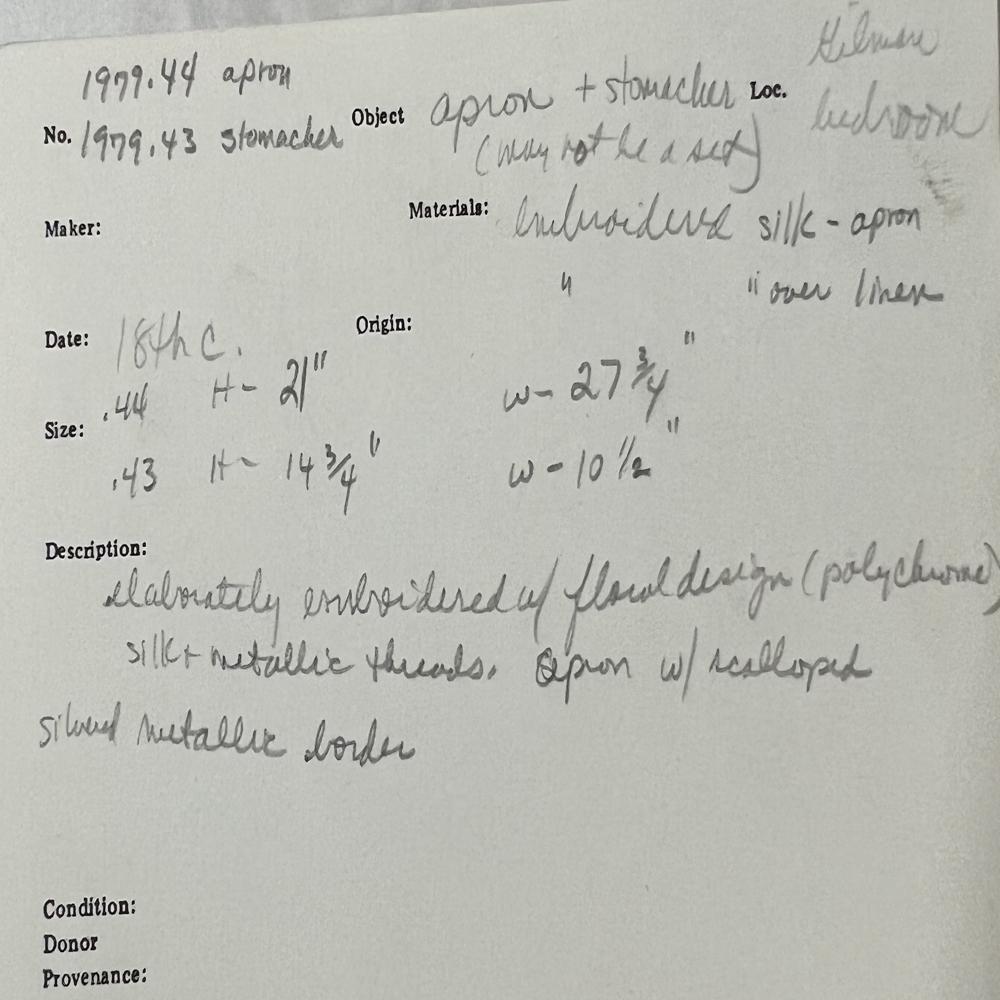 1979.44 apron
No. 1979.43 stomacher Object apron + stomacher Loc. bedroom
(may not be a set)
Maker: Materials: Embroidered silk - apron
" " over linen
Date: 18th c. Origin:
.44 H - 21" w - 27 3/4"
Size:
.43 H - 14 3/4" w - 10 1/2"
Description:
elaborately embroidered w/ floral design (polychrome)
silk + metallic threads. Apron w/ scalloped
silver metallic border
Condition:
Donor
Provenance: